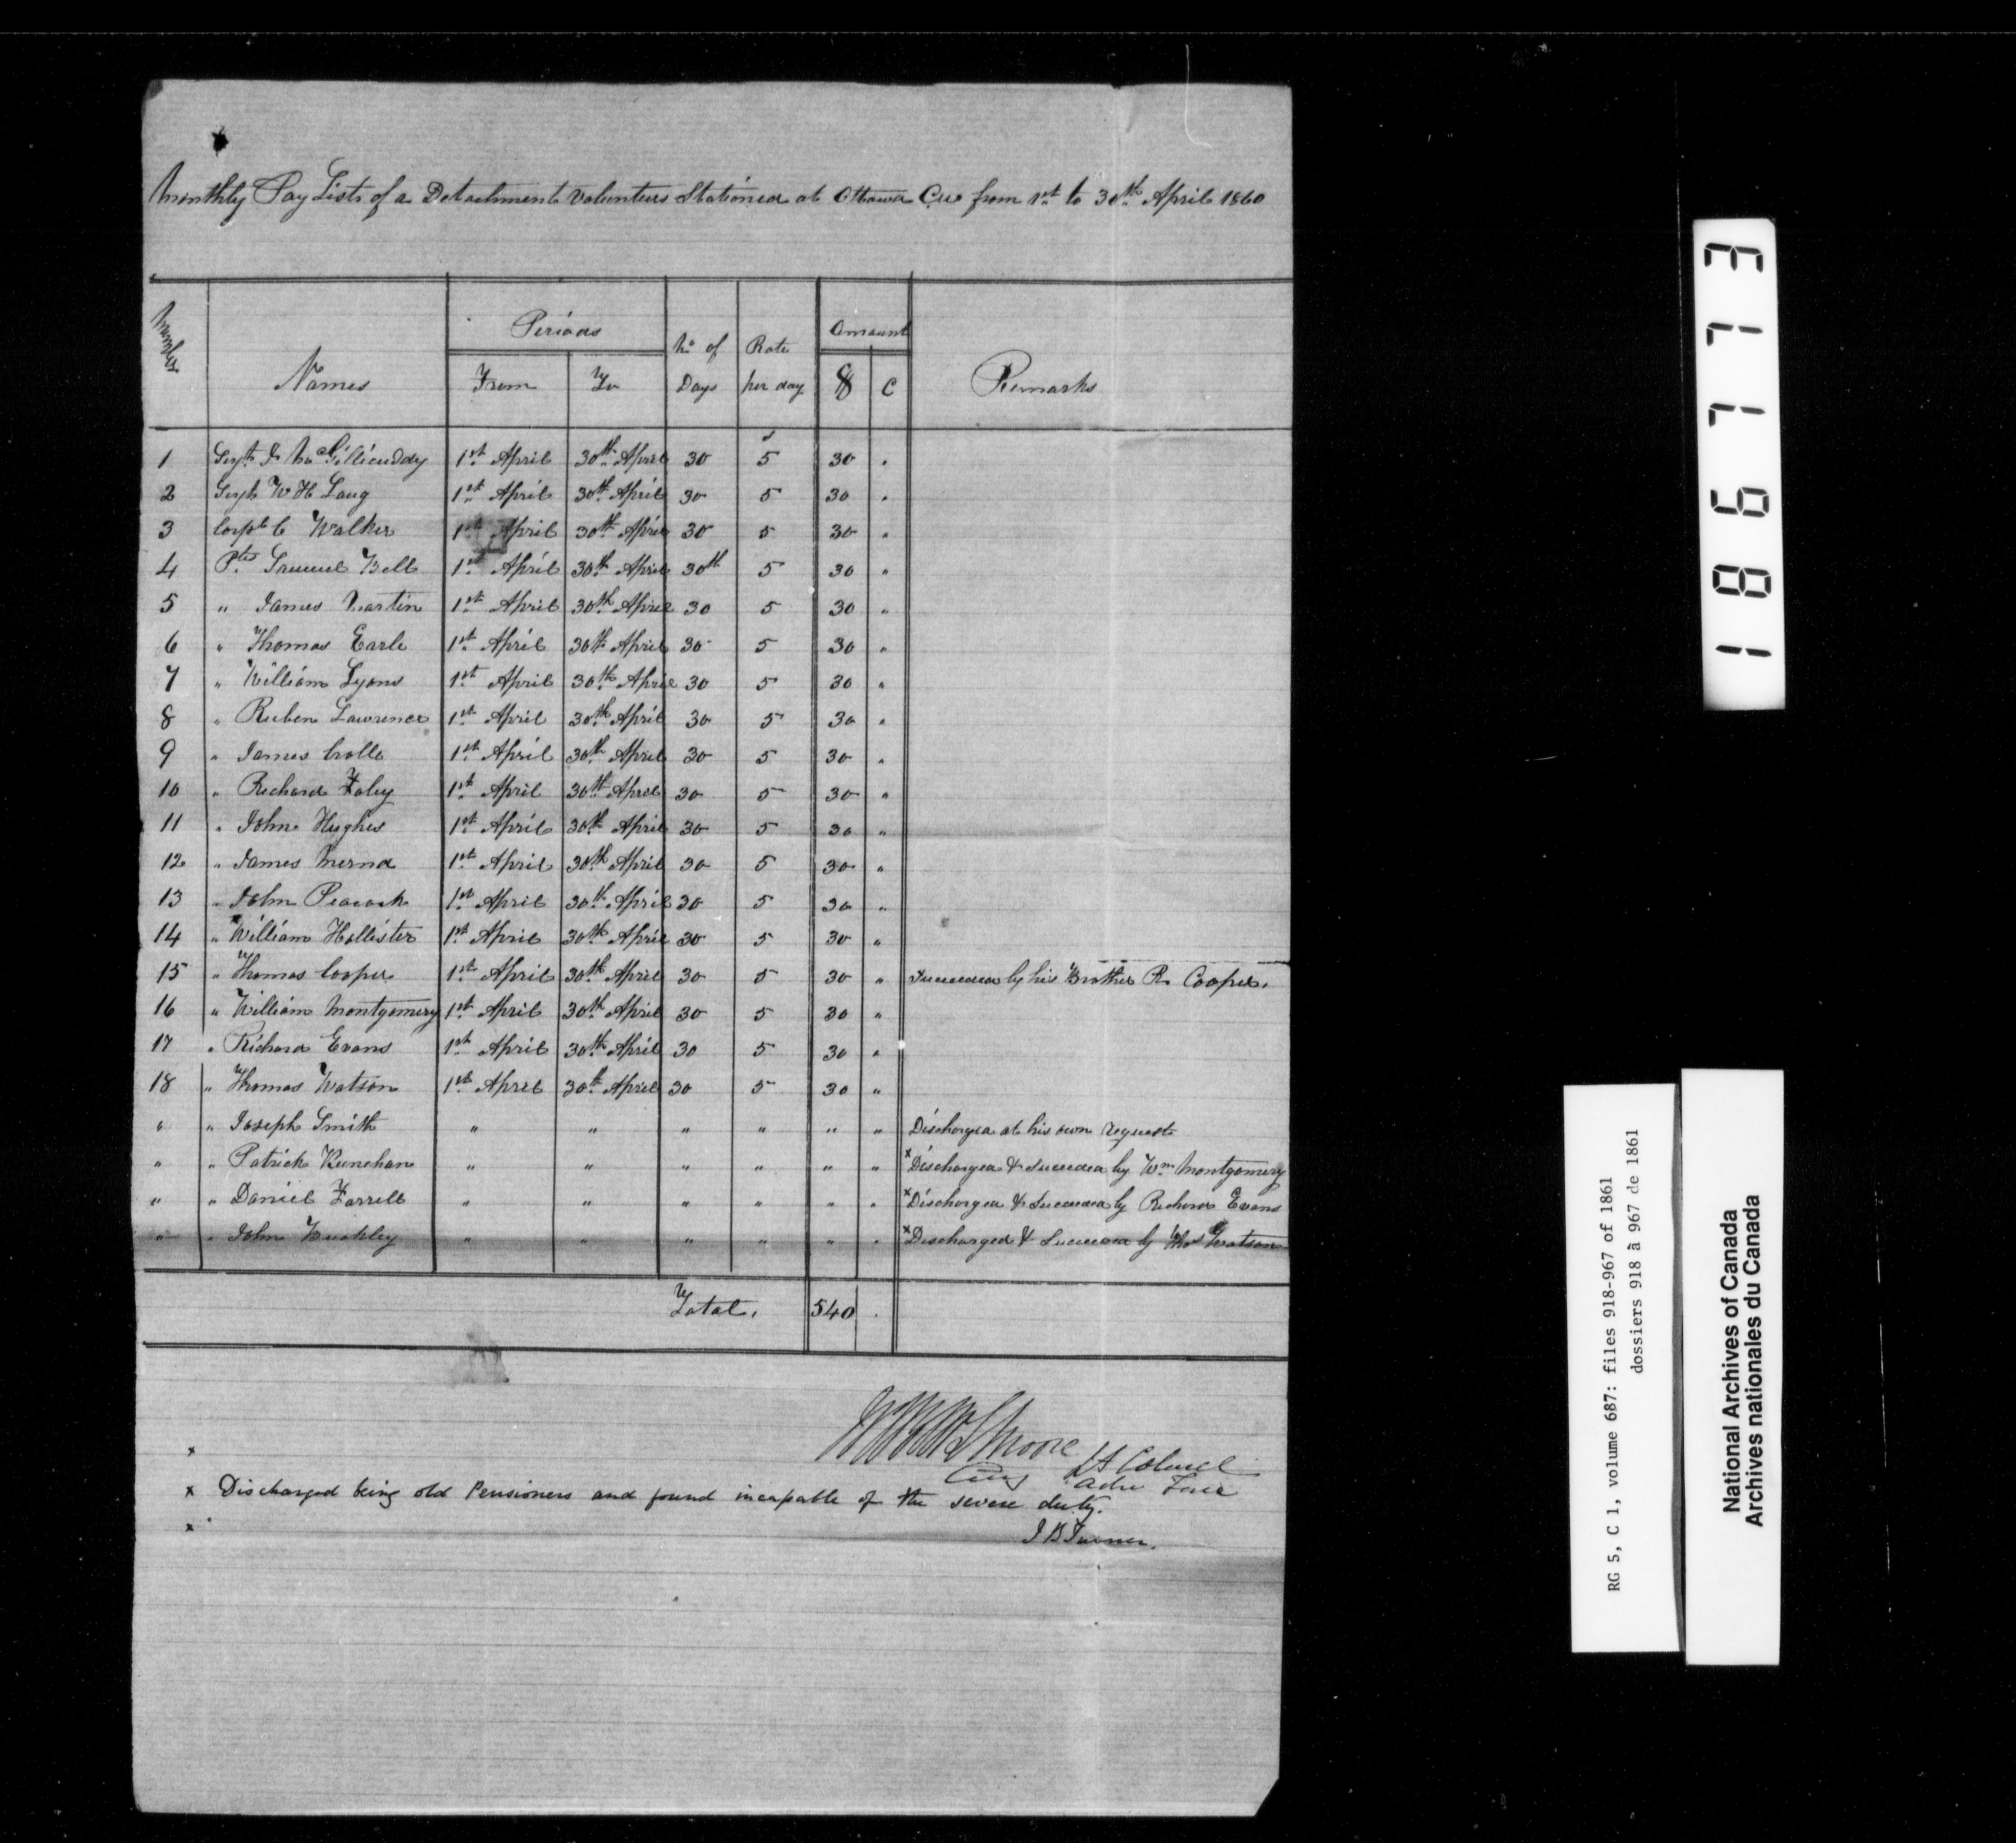 Monthly Pay List of a Detachment Volunteers Stationed at Ottawa C.W from 1st to 30th April 1860
Number Names Periods From To No of Days Rate per day Amount $ C Remarks
s
1 Sergt J McGillicuddy 1st April 30th April 30 5 30 .
2 Sergt W H Lang 1st April 30th April 30 5 30 .
3 Corpl C Walker 1st April 30th April 30 5 30 "
4 Pte Samuel Bell 1st April 30th April 30th 5 30 "
5 " James Martin 1st April 30th April 30 5 30 "
6 " Thomas Earle 1st April 30th April 30 5 30 "
7 " William Lyons 1st April 30th April 30 5 30 "
8 " Ruben Lawrence 1st April 30th April 30 5 30 "
9 " James Crolle 1st April 30th April 30 5 30 "
10 " Richard Foley 1st April 30th April 30 5 30 "
11 " John Hughes 1st April 30th April 30 5 30 "
12 " James 1st April 30th April 30 5 30 "
13 " John Peacock 1st April 30th April 30 5 30 "
14 " William Hollister 1st April 30th April 30 5 30 "
15 " Thomas Cooper 1st April 30th April 30 5 30 " Succeeded by his Brother R. Cooper.
16 " William Montgomery 1st April 30th April 30 5 30 "
17 " Richard Evans 1st April 30th April 30 5 30 "
18 " Thomas Watson 1st April 30th April 30 5 30 "
" " Joseph Smith " " " " " " Discharged at his own request
" " Patrick " " " " " " x Discharged & Succeeded by Wm Montgomery
" " Daniel Farrell " " " " " " x Discharged & Succeeded by Richard Evans
" " John Buckley " " " " " " x Discharged & Succeeded by Thos Watson
Total. 540 .
Moore
Lt Colonel
x
x Discharged being old Pensioners and found incapable of the severe duty.
x
J B Turner.
186773
RG 5, C 1, volume 687: files 918-967 of 1861
dossiers 918 à 967 de 1861
National Archives of Canada
Archives nationales du Canada